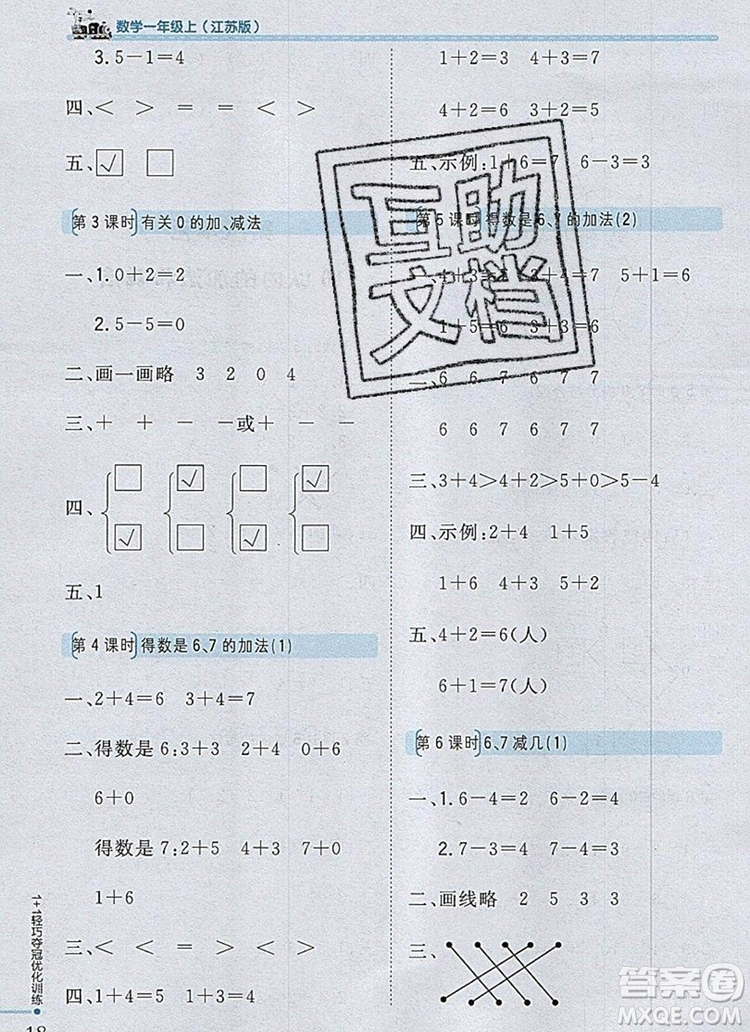 数学一年级上(江苏版)
3. 5-1=4
四、< > = = < >
五、☑ □
第3课时 有关0的加、减法
一、1. 0+2=2
2. 5-5=0
二、画一画略 3 2 0 4
三、+ + - -或+ - -
四、
五、1
第4课时 得数是6、7的加法(1)
一、2+4=6 3+4=7
二、得数是6:3+3 2+4 0+6
6+0
得数是7:2+5 4+3 7+0
1+6
三、< < = > < =
四、1+4=5 2+5=7
1+2=3 4+3=7
4+2=6 3+2=5
五、示例:1+6=7 6-3=3
第5课时 得数是6、7的加法(2)
4+3=7 5+1=6
1+5=6 3+3=6
6 7 6 6 7 7
6 6 7 6 7 7
三、3+4>4+2>5+0>5-4
四、示例:2+4 1+5
1+6 4+3 5+2
五、4+2=6(人)
6+1=7(人)
第6课时 6、7减几(1)
一、1. 6-4=2 6-2=4
2. 7-3=4 7-4=3
二、画线略 2 5 3 3
三、
1+1轻巧夺冠优化训练
18
互助文档
答案圈
MXQE.COM